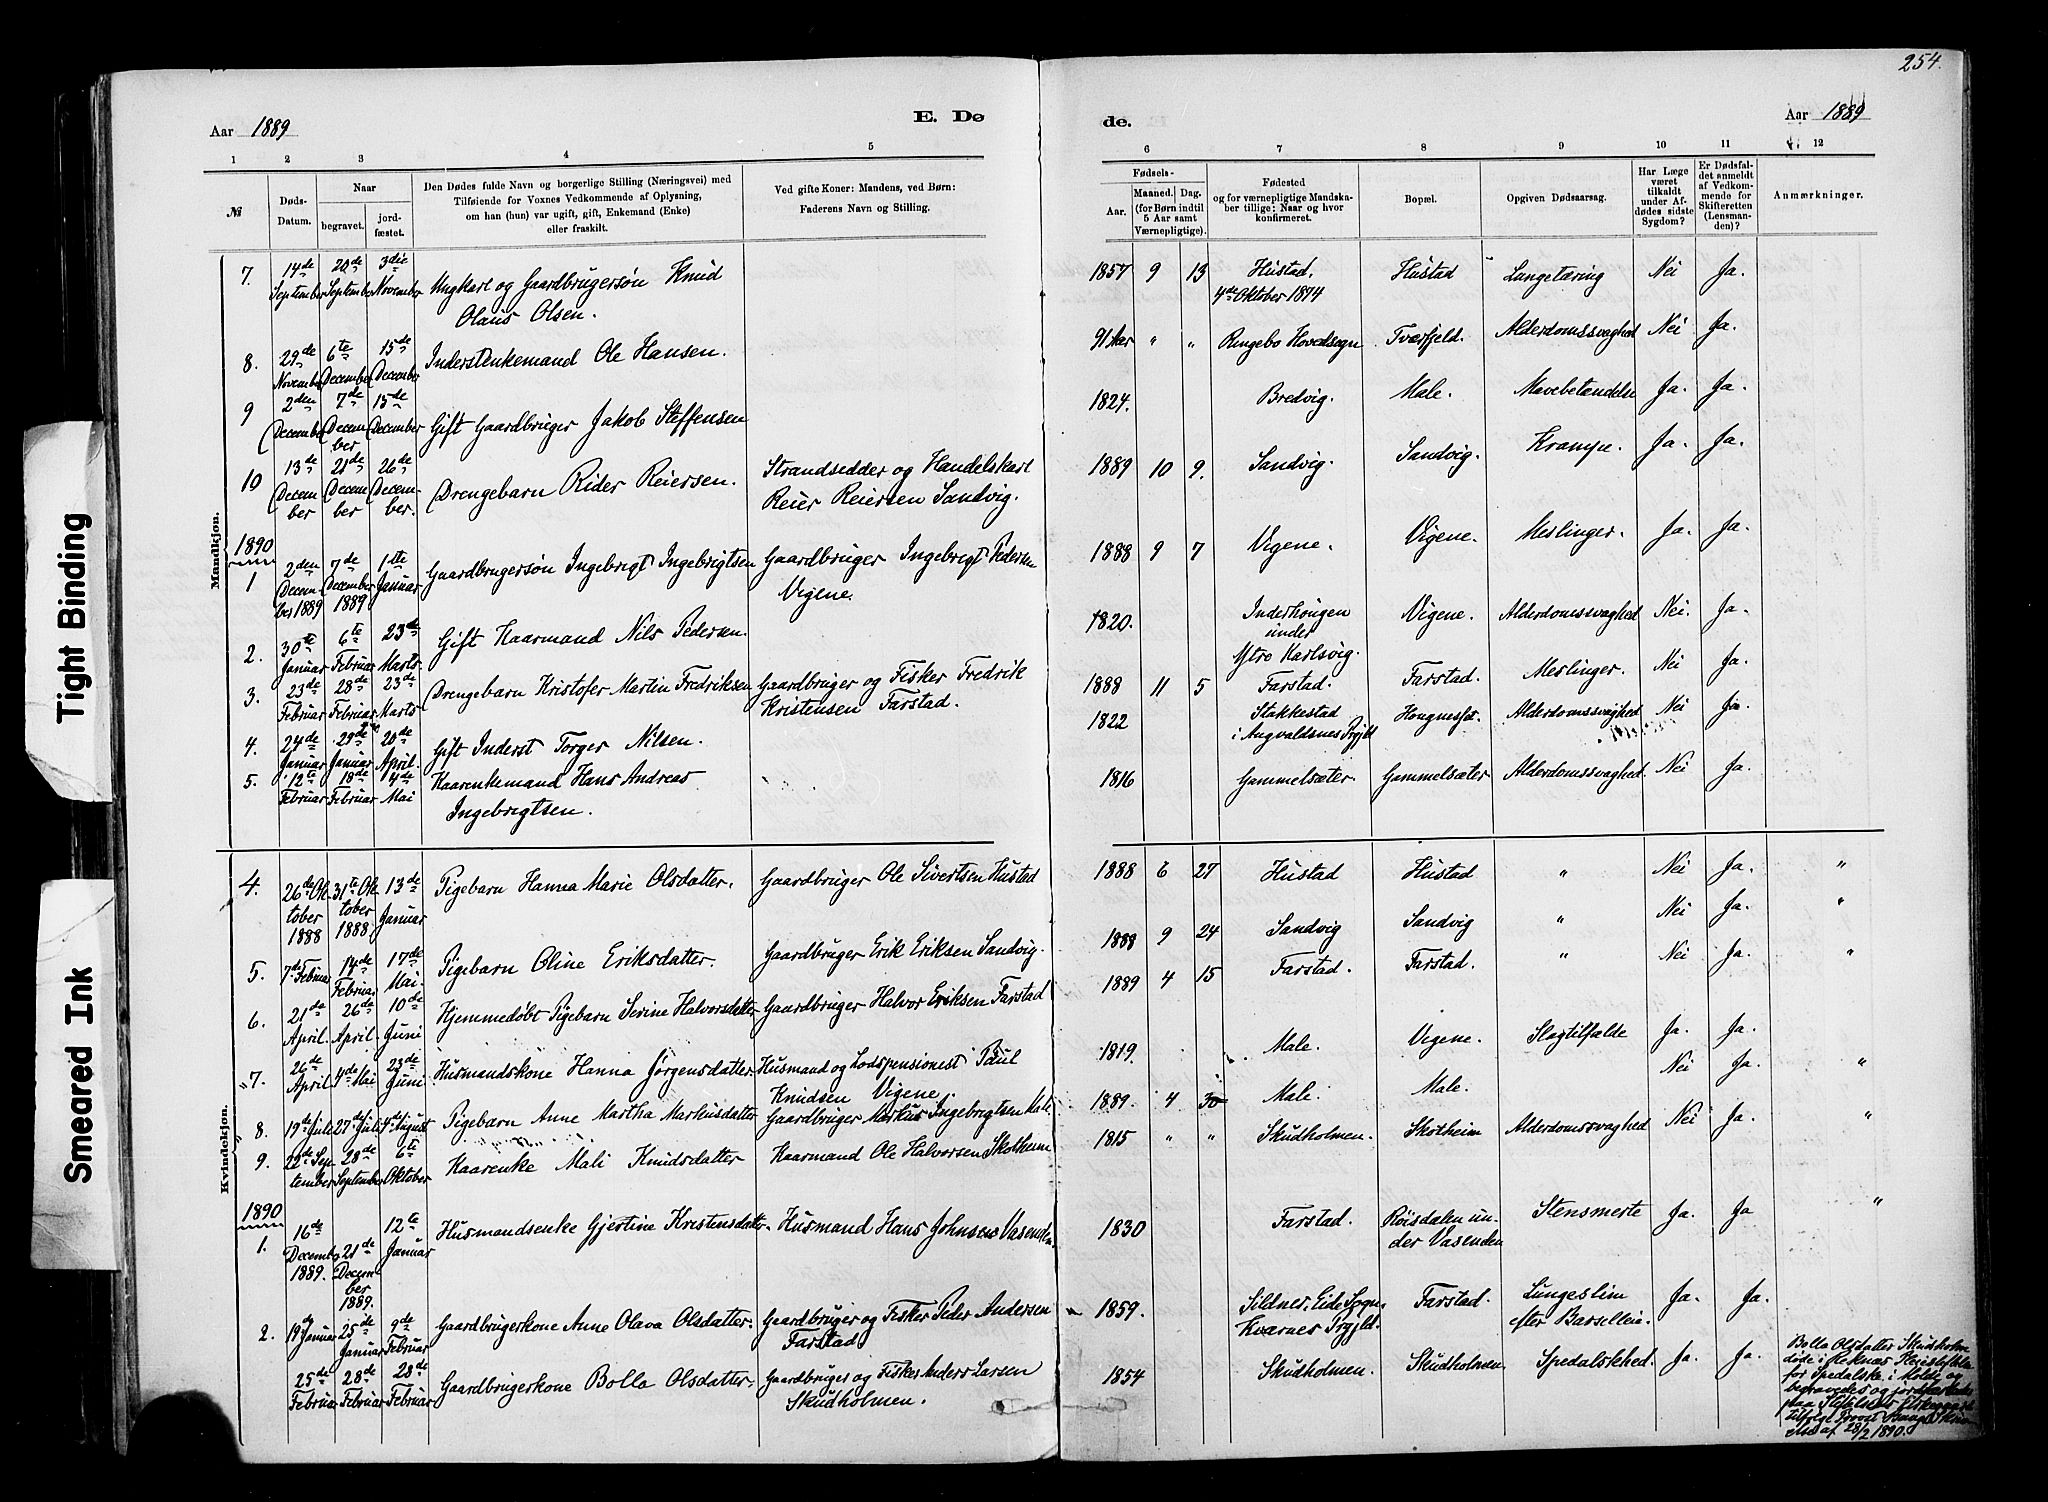 254.
Aar 1889
E. Dø
de.
Aar 1889
1 2 3 4 5
6 7 8 9 10 11 12
№
Døds-Datum.
Naar
begravet.
jord-fæstet.
Den Dødes fulde Navn og borgerlige Stilling (Næringsvei) med
Tilføiende for Voxnes Vedkommende af Oplysning,
om han (hun) var ugift, gift, Enkemand (Enke)
eller fraskilt.
Ved gifte Koner: Mandens, ved Børn:
Faderens Navn og Stilling.
Fødsels-
Aar.
Maaned. Dag.
(for Børn indtil
5 Aar samt
Værnepligtige).
Fødested
og for værnepligtige Mandska-
ber tillige: Naar og hvor
konfirmeret.
Bopæl.
Opgiven Dødsaarsag.
Har Læge
været
tilkaldt
under Af-
dødes sidste
Sygdom?
Er Dødsfal-
det anmeldt
af Vedkom-
mende for
Skifteretten
(Lensman-
den)?
Anmærkninger.
Mandkjøn.
7. 14de September 20de September 3die November Ungkarl og Gaardbrugersøn Knud
Olaus Olsen.
1857 9 13 Hustad, 4de Oktober 1874 Hustad Lungetæring Nei Ja.
8. 29de November 6te December 15de December Inderstenkemand Ole Hansen.
91 Aar " " Ringebo Hovedsogn Tverfjeld. Alderdomssvaghed Nei Ja.
9 2den December 7de December 15de December Gift Gaardbruger Jakob Steffensen
1824. Bredvig. Male. Mavebetændelse Ja. Ja.
10 13de December 21de December 26de December. Drengebarn Rider Reiersen. Strandsidder og Handelskarl
Reier Reiersen Sandvig.
1889 10 9. Sandvig. Sandvig. Krampe. Ja. Ja.
1890
1 2den December 1889 7de December 1889 1ste Januar Gaardbrugersøn Ingebrigt Ingebrigtsen Gaardbruger Ingebrigt Pedersen
Vigene.
1888 9 7 Vigene. Vigene. Meslinger. Ja. Ja.
2. 30te Januar 6te Februar 23de Marts Gift Kaarmand Nils Pedersen.
1820. Inderhougen under Ytre Karlsvig. Vigene. Alderdomssvaghed Nei. Ja.
3. 23de Februar 28de Februar 23de Marts Drengebarn Kristofer Martin Fredriksen Gaardbruger og Fisker Fredrik
Kristensen Farstad.
1888 11 5 Farstad. Farstad. Meslinger. Nei Ja.
4. 24de Januar 29de Januar 20de April. Gift Inderst Torger Nilsen.
1822 Stakkestad i Augvaldsnes Prgjld Alderdomssvaghed Nei Ja.
5. 12te Februar 18de Februar 4de Mai Kaarenkemand Hans Andreas
Ingebrigtsen.
1816 Gammelsæter. Gammelsæter Alderdomssvaghed Nei Ja.
Kvindekjøn.
4. 26de Oktober 1888 31te Oktober 1888 13de Januar Pigebarn Hanna Marie Olsdatter. Gaardbruger Ole Sivertsen Hustad
1888 6 27 Hustad Hustad " Nei Ja. "
5. 7de Februar 14de Februar 17de Mai. Pigebarn Oline Eriksdatter. Gaardbruger Erik Eriksen Sandvig.
1888 9 24 Sandvig Sandvig " Nei Ja. "
6. 21de April. 26de April. 10de Juni Hjemmedøbt Pigebarn Serine Halvorsdatter Gaardbruger Halvor Eriksen Farstad
1889 4 15 Farstad. Farstad. " Nei Ja. "
7. 26de April 4de Mai 23de Juni Husmandskone Hanna Jørgensdatter Husmand og Lodspensionist Paul
Knudsen Vigene.
1819. Male. Vigene. Slagtilfælde Ja. Ja.
8. 19de Juli 27de Juli 4de August Pigebarn Anne Martha Markusdatter Gaardbruger Markus Ingebrigtsen Male
1889. 4 30 Male. Male. Nei Ja. "
9. 22de September 28de September 6te Oktober Kaarenke Mali Knudsdatter Kaarmand Ole Halvorsen Skotheim
1815 " " Skudholmen. Skotheim Alderdomssvaghed Nei Ja. "
1890
1. 16de December 1889. 21de December 1889. 12te Januar Husmandsenke Gjertine Kristensdatter. Husmand Hans Johnsen Vasenden.
1830 Farstad. Røisdalen under Vasenden Stensmerte Ja. Ja "
2. 19de Januar 25de Januar 9de Februar Gaardbrugerkone Anne Olava Olsdatter. Gaardbruger og Fisker Peder Andersen
Farstad
1859. Sildnes, Eide Sogn, Kvernes Prgjld. Farstad. Lungeslim efter Barselleie. Ja. Ja.
25de Februar 28de Februar 28de Februar Gaardbrugerkone Bolla Olsdatter. Gaardbruger og Fisker Anders Larsen
Skudholmen.
1854 Skudholmen. Skudholmen Spedalskhed. Ja. Ja. Bolla Olsdatter Skudholm
døde i Reknæs Pleiestiftelse
for Spedalske i Molde og
begravedes og jordfæstedes
paa Stiftelsens
28/2 1890.
Tight Binding
Smeared Ink